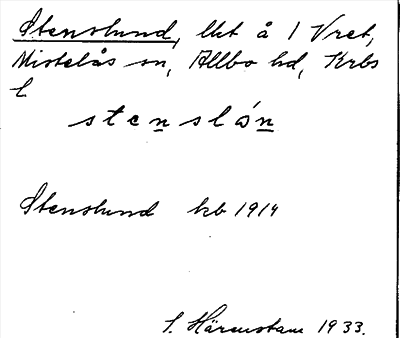 Stenslund, lht å 1 Vret,
Mistelås sn, Allbo hd, Krbs
l
stenslón
Stenslund kb 1914
S. Härenstam 1933.